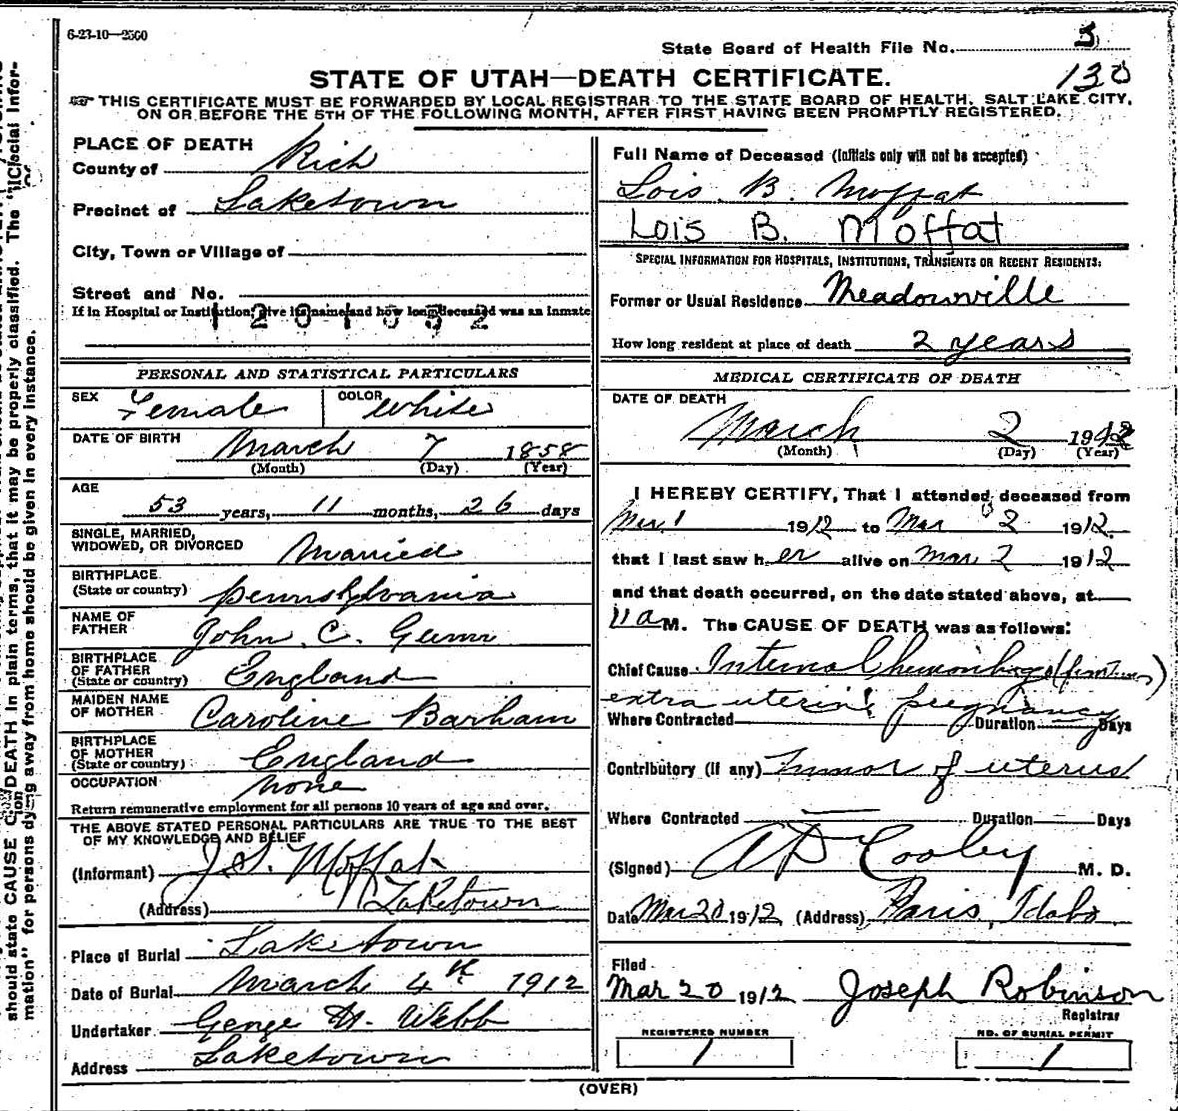 6-23-10—2500
State Board of Health File No. 3
130
STATE OF UTAH—DEATH CERTIFICATE.
THIS CERTIFICATE MUST BE FORWARDED BY LOCAL REGISTRAR TO THE STATE BOARD OF HEALTH, SALT LAKE CITY,
ON OR BEFORE THE 5TH OF THE FOLLOWING MONTH, AFTER FIRST HAVING BEEN PROMPTLY REGISTERED.
PLACE OF DEATH
County of Rich
Precinct of Laketown
City, Town or Village of
Street and No.
If in Hospital or Institution, give its name and how long deceased was an inmate
PERSONAL AND STATISTICAL PARTICULARS
SEX Female COLOR White
DATE OF BIRTH March 7 1858
(Month) (Day) (Year)
AGE
53 years, 11 months, 26 days
SINGLE, MARRIED,
WIDOWED, OR DIVORCED Married
BIRTHPLACE
(State or country) Pennsylvania
NAME OF
FATHER John C.
BIRTHPLACE
OF FATHER England
(State or country)
MAIDEN NAME
OF MOTHER Caroline Barham
BIRTHPLACE
OF MOTHER England
(State or country)
OCCUPATION None
Return remunerative employment for all persons 10 years of age and over.
THE ABOVE STATED PERSONAL PARTICULARS ARE TRUE TO THE BEST
OF MY KNOWLEDGE AND BELIEF
(Informant) J. S. Moffat
(Address) Laketown
Place of Burial Laketown
Date of Burial March 4th 1912
Undertaker George Webb
Address Laketown
Full Name of Deceased (Initials only will not be accepted)
Lois B. Moffat
Lois B. Moffat
SPECIAL INFORMATION FOR HOSPITALS, INSTITUTIONS, TRANSIENTS OR RECENT RESIDENTS:
Former or Usual Residence Meadowville
How long resident at place of death 2 years
MEDICAL CERTIFICATE OF DEATH
DATE OF DEATH
March 2 1912
(Month) (Day) (Year)
I HEREBY CERTIFY, That I attended deceased from
Mar 1 1912 to Mar 2 1912
that I last saw her alive on Mar 2 1912
and that death occurred, on the date stated above, at
11 a M. The CAUSE OF DEATH was as follows:
Chief Cause Internal hemorrhage (from
extra uterine pregnancy
Where Contracted Duration Days
Contributory (if any) Tumor of uterus
Where Contracted Duration Days
(Signed) Cooley M. D.
Date Mar 20 1912 (Address) Paris, Idaho
Filed
Mar 20 1912 Joseph Robinson
Registrar
REGISTERED NUMBER
1
NO. OF BURIAL PERMIT
1
(OVER)
should state CAUSE OF DEATH in plain terms, that it may be properly classified. The
mation" for persons dying away from home should be given in every instance.